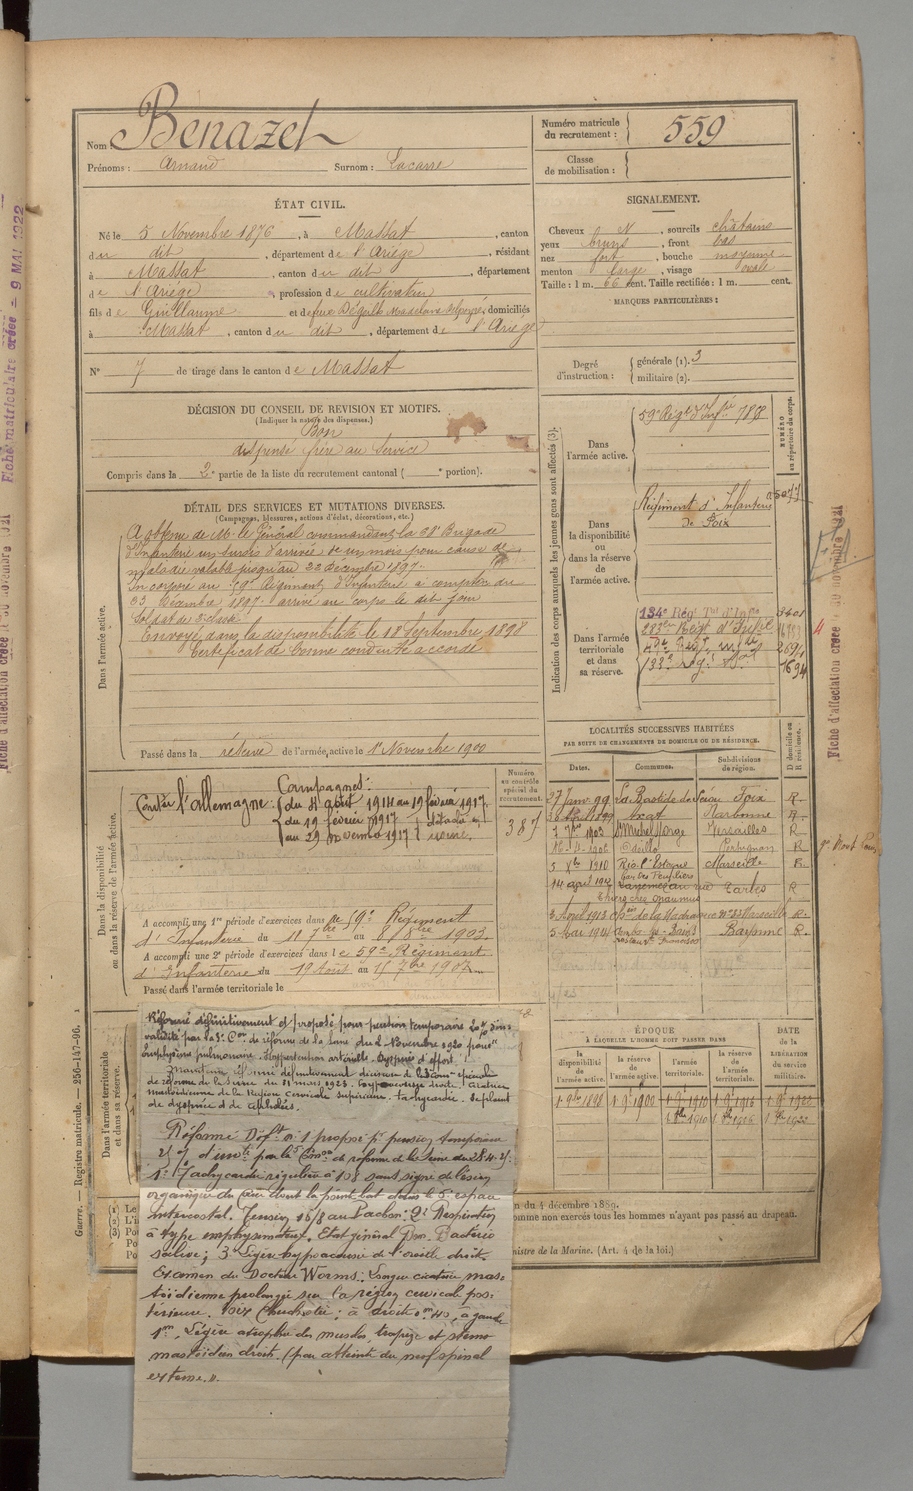 Nom Benazet
Prénoms : Arnaud Surnom : Lacarre
Numéro matricule du recrutement : 559
Classe de mobilisation :
ÉTAT CIVIL.
Né le 5 Novembre 1876, à Massat, canton
du dit, département de l'Ariége, résidant
à Massat, canton du dit, département
de l'Ariége, profession de cultivateur
fils de Guillaume et de feue Dégeilh Madelaine, domiciliés
à Massat, canton du dit, département de l'Ariége
N° 7 de tirage dans le canton de Massat
SIGNALEMENT.
Cheveux N, sourcils châtains
yeux bruns, front bas
nez fort, bouche moyenne
menton large, visage ovale
Taille : 1 m. 66 cent. Taille rectifiée : 1 m. cent.
MARQUES PARTICULIÈRES :
Degré d'instruction : générale (1). 3
militaire (2).
DÉCISION DU CONSEIL DE REVISION ET MOTIFS.
(Indiquer la nature des dispenses.)
Bon
dispensé frère au Service
Compris dans la 2e partie de la liste du recrutement cantonal ( e portion).
DÉTAIL DES SERVICES ET MUTATIONS DIVERSES.
(Campagnes, blessures, actions d'éclat, décorations, etc.)
Dans l'armée active.
A obtenu de M. le Général commandant la 68e Brigade
d'Infanterie un sursis d'arrivée de un mois pour cause de
maladie valable jusqu'au 22 Décembre 1897.
Incorporé au 59e Régiment d'Infanterie à compter du
23 Décembre 1897. arrivé au corps le dit jour
Soldat de 2e classe
Envoyé dans la disponibilité le 18 Septembre 1898
Certificat de bonne conduite accordé
Passé dans la réserve de l'armée active le 1er Novembre 1900
Indication des corps auxquels les jeunes gens sont affectés (3).
NUMÉRO au répertoire du corps.
Dans l'armée active.
59e Régt d'Infrie 1878
Dans la disponibilité ou dans la réserve de l'armée active.
Régiment d'Infanterie
de Foix
Dans l'armée territoriale et dans sa réserve.
134e Régt Tal d'Infie 3401
283e Régt d'Infie
1694
Dans la disponibilité ou dans la réserve de l'armée active.
Numéro au contrôle spécial du recrutement.
387
Campagnes :
Contre l'Allemagne du 4 août 1914 au 19 février 1917
du 19 février 1917 détaché en
au 29 novembre 1917 usine.
A accompli une 1re période d'exercices dans le 59e Régiment
d'Infanterie du 11 7bre au 8 8bre 1903.
A accompli une 2e période d'exercices dans le 59e Régiment
d'Infanterie du 19 Août au 15 7bre 1907
Passé dans l'armée territoriale le
LOCALITÉS SUCCESSIVES HABITÉES
PAR SUITE DE CHANGEMENTS DE DOMICILE OU DE RÉSIDENCE.
Dates. Communes. Subdivisions de région. D domicile ou R résidence.
27 Janv. 99 La Bastide de Sérou Foix R.
Narbonne R
1903 St Michel s/orge Versailles R
1906 Odeillo Perpignan
5 Xbre 1910 Rio l'Estaque Marseille R.
14 avril 1912 Tarbes R
3 Avril 1913 Marseille R.
5 Mai 1914 Combo-les-Bains Bayonne R.
ÉPOQUE
À LAQUELLE L'HOMME DOIT PASSER DANS
la disponibilité de l'armée active. la réserve de l'armée active. l'armée territoriale. la réserve de l'armée territoriale.
DATE de la LIBÉRATION du service militaire.
1 9bre 1898 1 9bre 1900 1 9bre 1910 1 9bre 1916 1 9bre 1922
Dans l'armée territoriale et dans sa réserve.
Réformé définitivement et proposé pour pension temporaire 20 % d'invalidité
par la 3e Con de réforme de la Seine du 2 Novembre 1920 pour
Emphysème pulmonaire. Hypertension artérielle. Dyspnée d'effort.
Maintenu réformé définitivement décision de la Comon spéciale
de réforme de la Seine du 11 mars 1923. Hypoacousie droite. Cicatrice
mastoïdienne de la Région cervicale supérieure. tachycardie. se plaint
de dyspnée et de céphalées.
Réformé Déft n° 1 proposé pr pension temporaire
par la 5e Comon de réforme de la Seine du 28-4-25.
1° Tachycardie régulière à 108 sans signe de lésion
organique du Cœur dont la pointe bat dans le 5e espace
intercostal. Tension 16/8 au Pachon. 2° Respiration
à type emphysémateux. Etat général Bon. Bactério
salive ; 3° Légère hypoacousie de l'oreille droite.
Examen du Docteur Worms. Longue cicatrice mastoïdienne
prolongée sur la région cervicale postérieure.
Voix Chuchotée ; à droite 0m40, à gauche
1m. Légère atrophie des muscles trapèze et sterno
mastoïdien droit. (par atteinte du nerf spinal
externe.).
du 4 décembre 1889.
omme non exercés tous les hommes n'ayant pas passé au drapeau.
nistre de la Marine. (Art. 4 de la loi.)
Guerre. — Registre matricule. — 256-147-96.
Fiche matriculaire créée = 9 MAI 1922
Fiche d'affectation créée